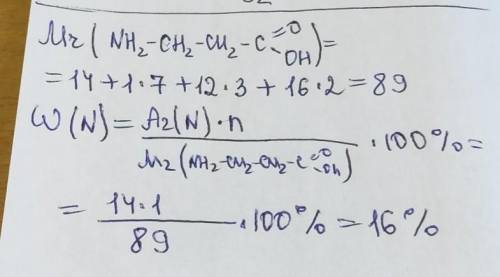 Mr ( NH₂-CH₂-CH₂-C =O OH ) =
= 14 + 1·7 + 12·3 + 16·2 = 89
ω(N) = Ar(N)·n / Mr(NH₂-CH₂-CH₂-C =O OH) · 100% =
= 14·1 / 89 · 100% = 16%